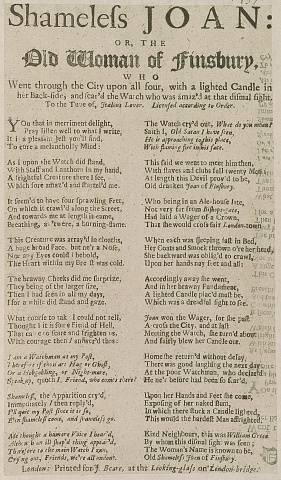 Shameleſs JOAN:
OR, THE
Old Woman of Finsbury,
WHO
Went through the City upon all four, with a lighted Candle in
her Back-ſide, and ſcar'd the Watch who was amaz'd at that diſmal ſight.
To the Tune of, Jealous Lover. Licenſed according to Order.
YOu that in merriment delight,
Pray liſten well to what I write,
It is a pleaſant Jeſt you'll find,
To cure a melancholly Mind:
As I upon the Watch did ſtand,
With Staff and Lanthorn in my hand,
A frightful Creature there I ſee,
Which ſore amaz'd and ſtartled me.
It ſeem'd to have four ſprawling Feet,
On which it crawl'd along the Street,
And towards me at length it came,
Breathing, as 'twere, a burning-flame.
This Creature was array'd in cloaths,
A huge broad Face but not a Noſe,
Nor any Eyes could I behold,
The Heart within my Breaſt was cold.
The heaving Cheeks did me ſurprize,
They being of the larger ſize,
Then I had ſeen in all my days,
I for a while did ſtand and gaze.
What courſe to take I could not tell,
Thought I it is ſome Fiend of Hell,
That came to ſcare and frighten us.
With courage then I anſwer'd thus:
I am a Watchman at my Poſt,
Therefore if thou art Hag or Ghoſt,
Or a Hobgobling, or Night-mare,
Speak, quoth I, Friend, who comes there?
Shameleſs, the Apparition cry'd,
Immediately I then reply'd,
I'll quit my Poſt ſince it is ſo,
E'en ſhameleſs come, and ſhameleſs go.
Methought a humane Voice I hear'd,
Altho' an ill-ſhap'd thing appear'd,
Therefore to the main Watch I ran,
Crying out, Friends, we're all undone.
The Watch cry'd out, What do you mean?
Saith I, Old Satan I have ſeen,
He is approaching to this place,
With flaming fire in his face.
This ſaid we went to meet him then,
With ſtaves and clubs full twenty Men
At length this Devil prov'd to be,
Old drunken Joan of Finsbury.
Who being in an Ale-houſe late,
Not very far from Biſhops-gate,
Had laid a Wager of a Crown,
That ſhe would croſs fair London-town
When each was ſleeping faſt in Bed,
Her Coats and Smock thrown o're her head,
She backward was oblig'd to crawl,
Upon her hands nay feet and all:
Accordingly away ſhe went,
And in her heaving Fundament,
A lighted Candle plac'd muſt be,
Which was a dreadful ſight to ſee.
Joan won the Wager, for ſhe paſt
A-croſs the City, and at laſt
Meeting the Watch, ſhe turn'd about
And fairly blew her Candle out.
Home ſhe return'd without delay,
There was good laughing the next day
At the poor Watchman, who declar'd
He ne'er before had been ſo ſcar'd.
Upon her Hands and Feet ſhe come,
Expoſing of her naked Bum,
In which there ſtuck a Candle lighted,
This would the hardeſt Man affrighted.
Kind Neighbours, this was William Green
By whom this diſmal ſight was ſeen;
The Woman's Name is known to be,
Old Shameleſs Joan of Finsbury.
London: Printed for J. Beare, at the Looking-glaſs on London-bridge.